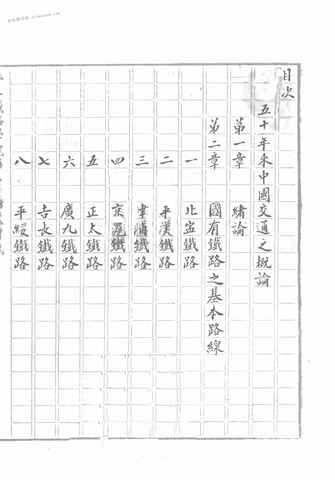 目次
五十年来中國交通之概論
第一章 緒論
第二章 國有鐵路之基本路線
一 北寗鐵路
二 平漢鐵路
三 津浦鐵路
四 京滬鐵路
五 正太鐵路
六 廣九鐵路
七 吉長鐵路
八 平綏鐵路